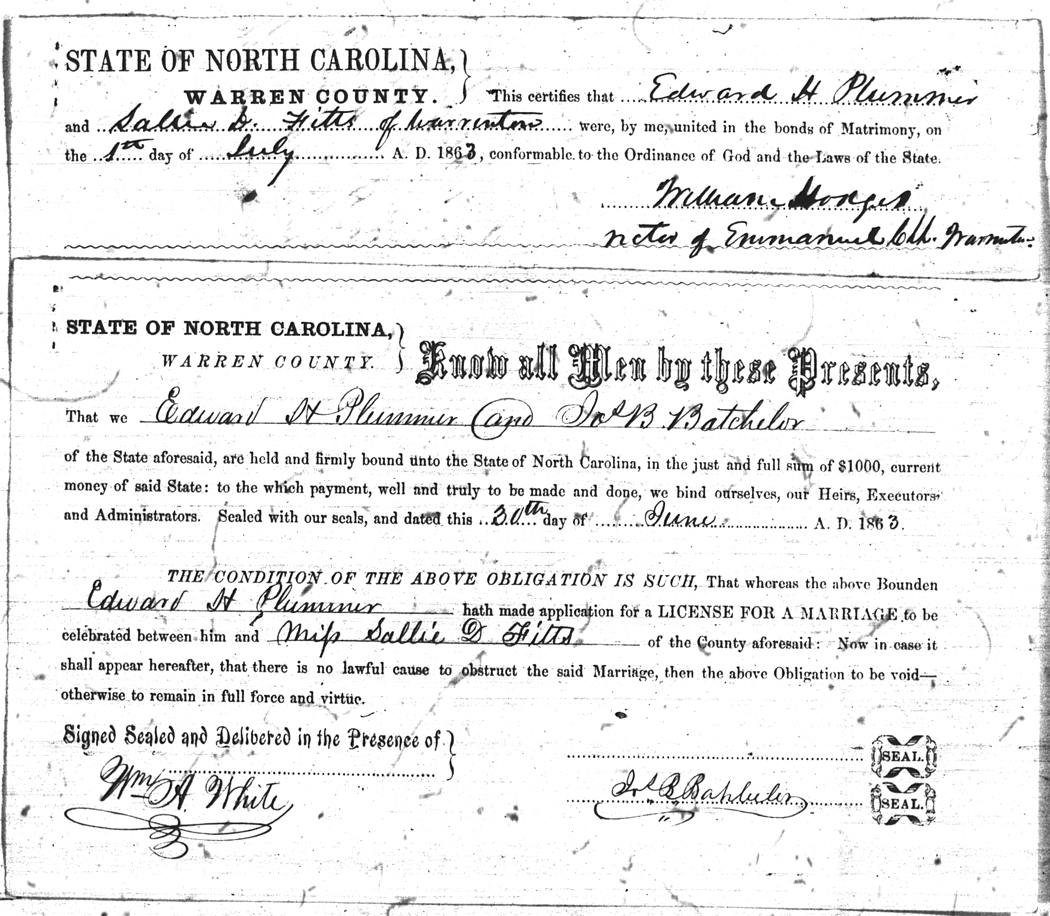 STATE OF NORTH CAROLINA,
WARREN COUNTY. This certifies that Edward H Plummer
and Sallie D. Fitts of Warrenton were, by me, united in the bonds of Matrimony, on
the 1th day of July A. D. 1863, conformable to the Ordinance of God and the Laws of the State.
William Hodges
rector of Emmanuel Ch. Warrenton
STATE OF NORTH CAROLINA,
WARREN COUNTY. Know all Men by these Presents,
That we Edward H Plummer and Jos B. Batchelor
of the State aforesaid, are held and firmly bound unto the State of North Carolina, in the just and full sum of $1000, current
money of said State: to the which payment, well and truly to be made and done, we bind ourselves, our Heirs, Executors
and Administrators. Sealed with our seals, and dated this 30th day of June A. D. 1863.
THE CONDITION OF THE ABOVE OBLIGATION IS SUCH, That whereas the above Bounden
Edward H Plummer hath made application for a LICENSE FOR A MARRIAGE to be
celebrated between him and Miss Sallie D Fitts of the County aforesaid: Now in case it
shall appear hereafter, that there is no lawful cause to obstruct the said Marriage, then the above Obligation to be void—
otherwise to remain in full force and virtue.
Signed Sealed and Delibered in the Presence of
SEAL.
Wm A White
Jos B Batchelor SEAL.